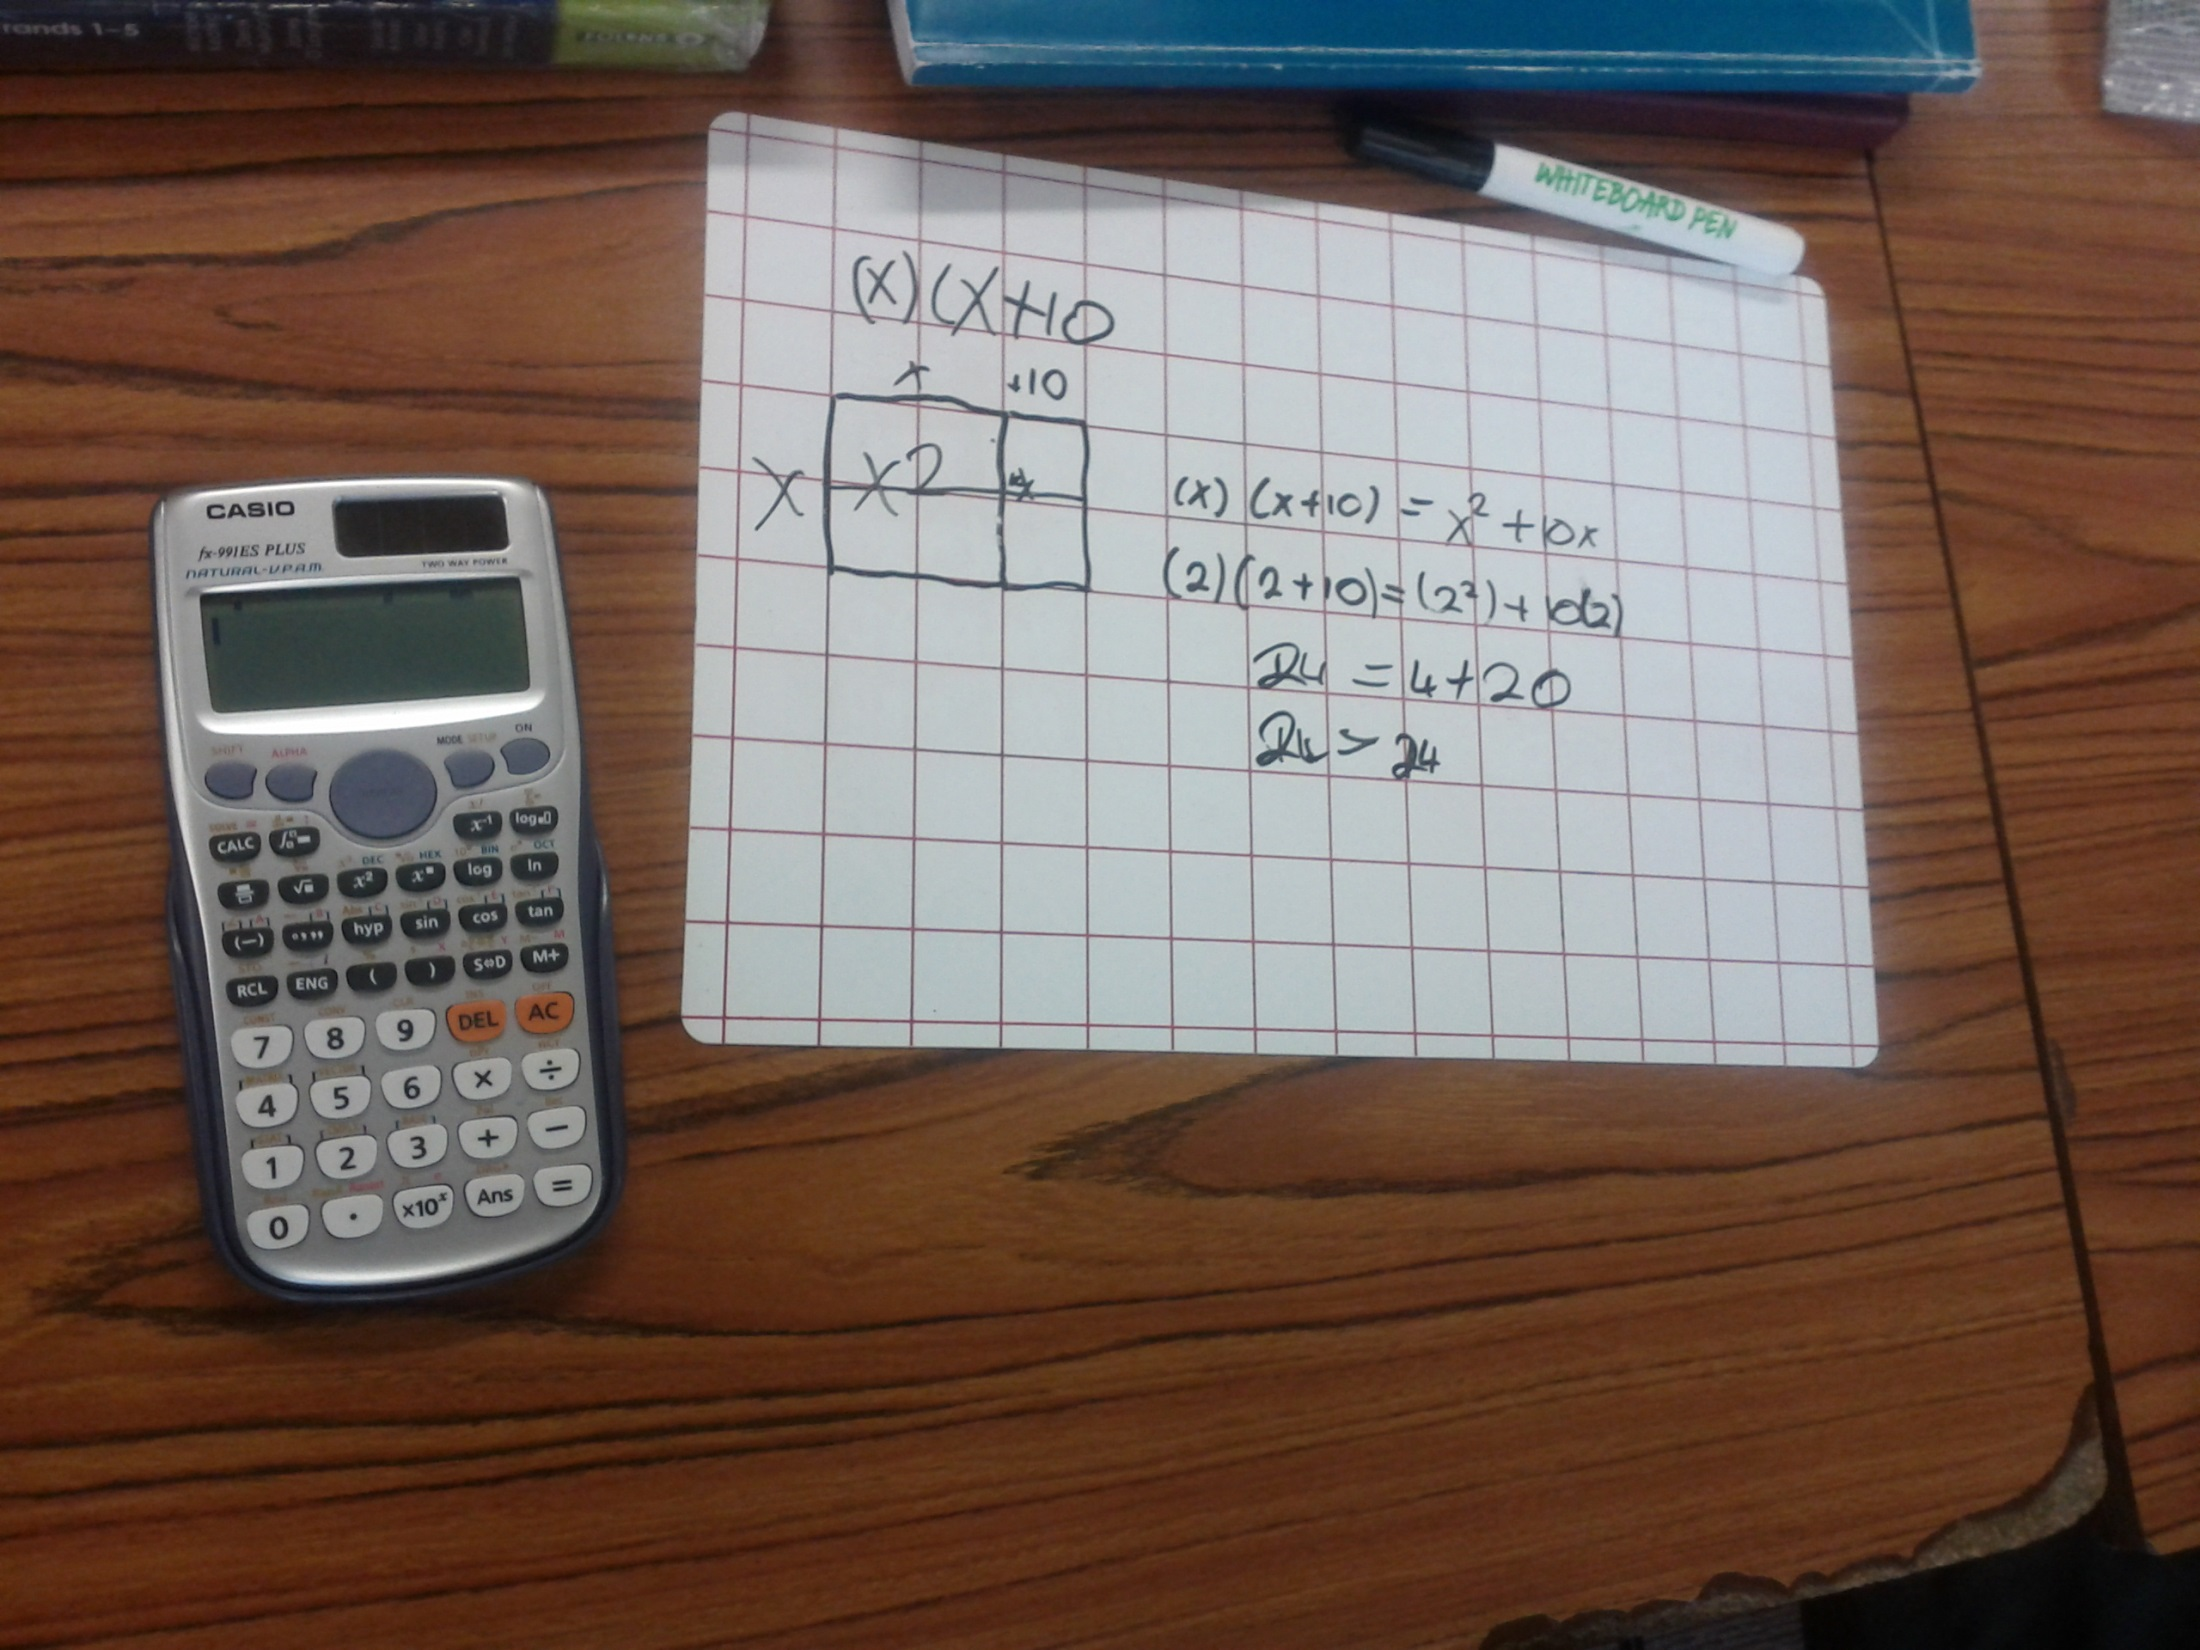 rands 1-5
FOLENS
WHITEBOARD PEN
(x)(x+10
x +10
x x2
(x) (x+10) = x² + 10x
(2)(2+10)=(2²)+10(2)
24 = 4+20
24 > 24
CASIO
fx-991ES PLUS
NATURAL-V.P.A.M.
TWO WAY POWER
SHIFT ALPHA MODE SETUP ON
CALC x⁻¹ log
x² x log ln
(−) hyp sin cos tan
RCL ENG ( ) S⇔D M+
7 8 9 DEL AC
4 5 6 × ÷
1 2 3 + −
0 . ×10ˣ Ans =